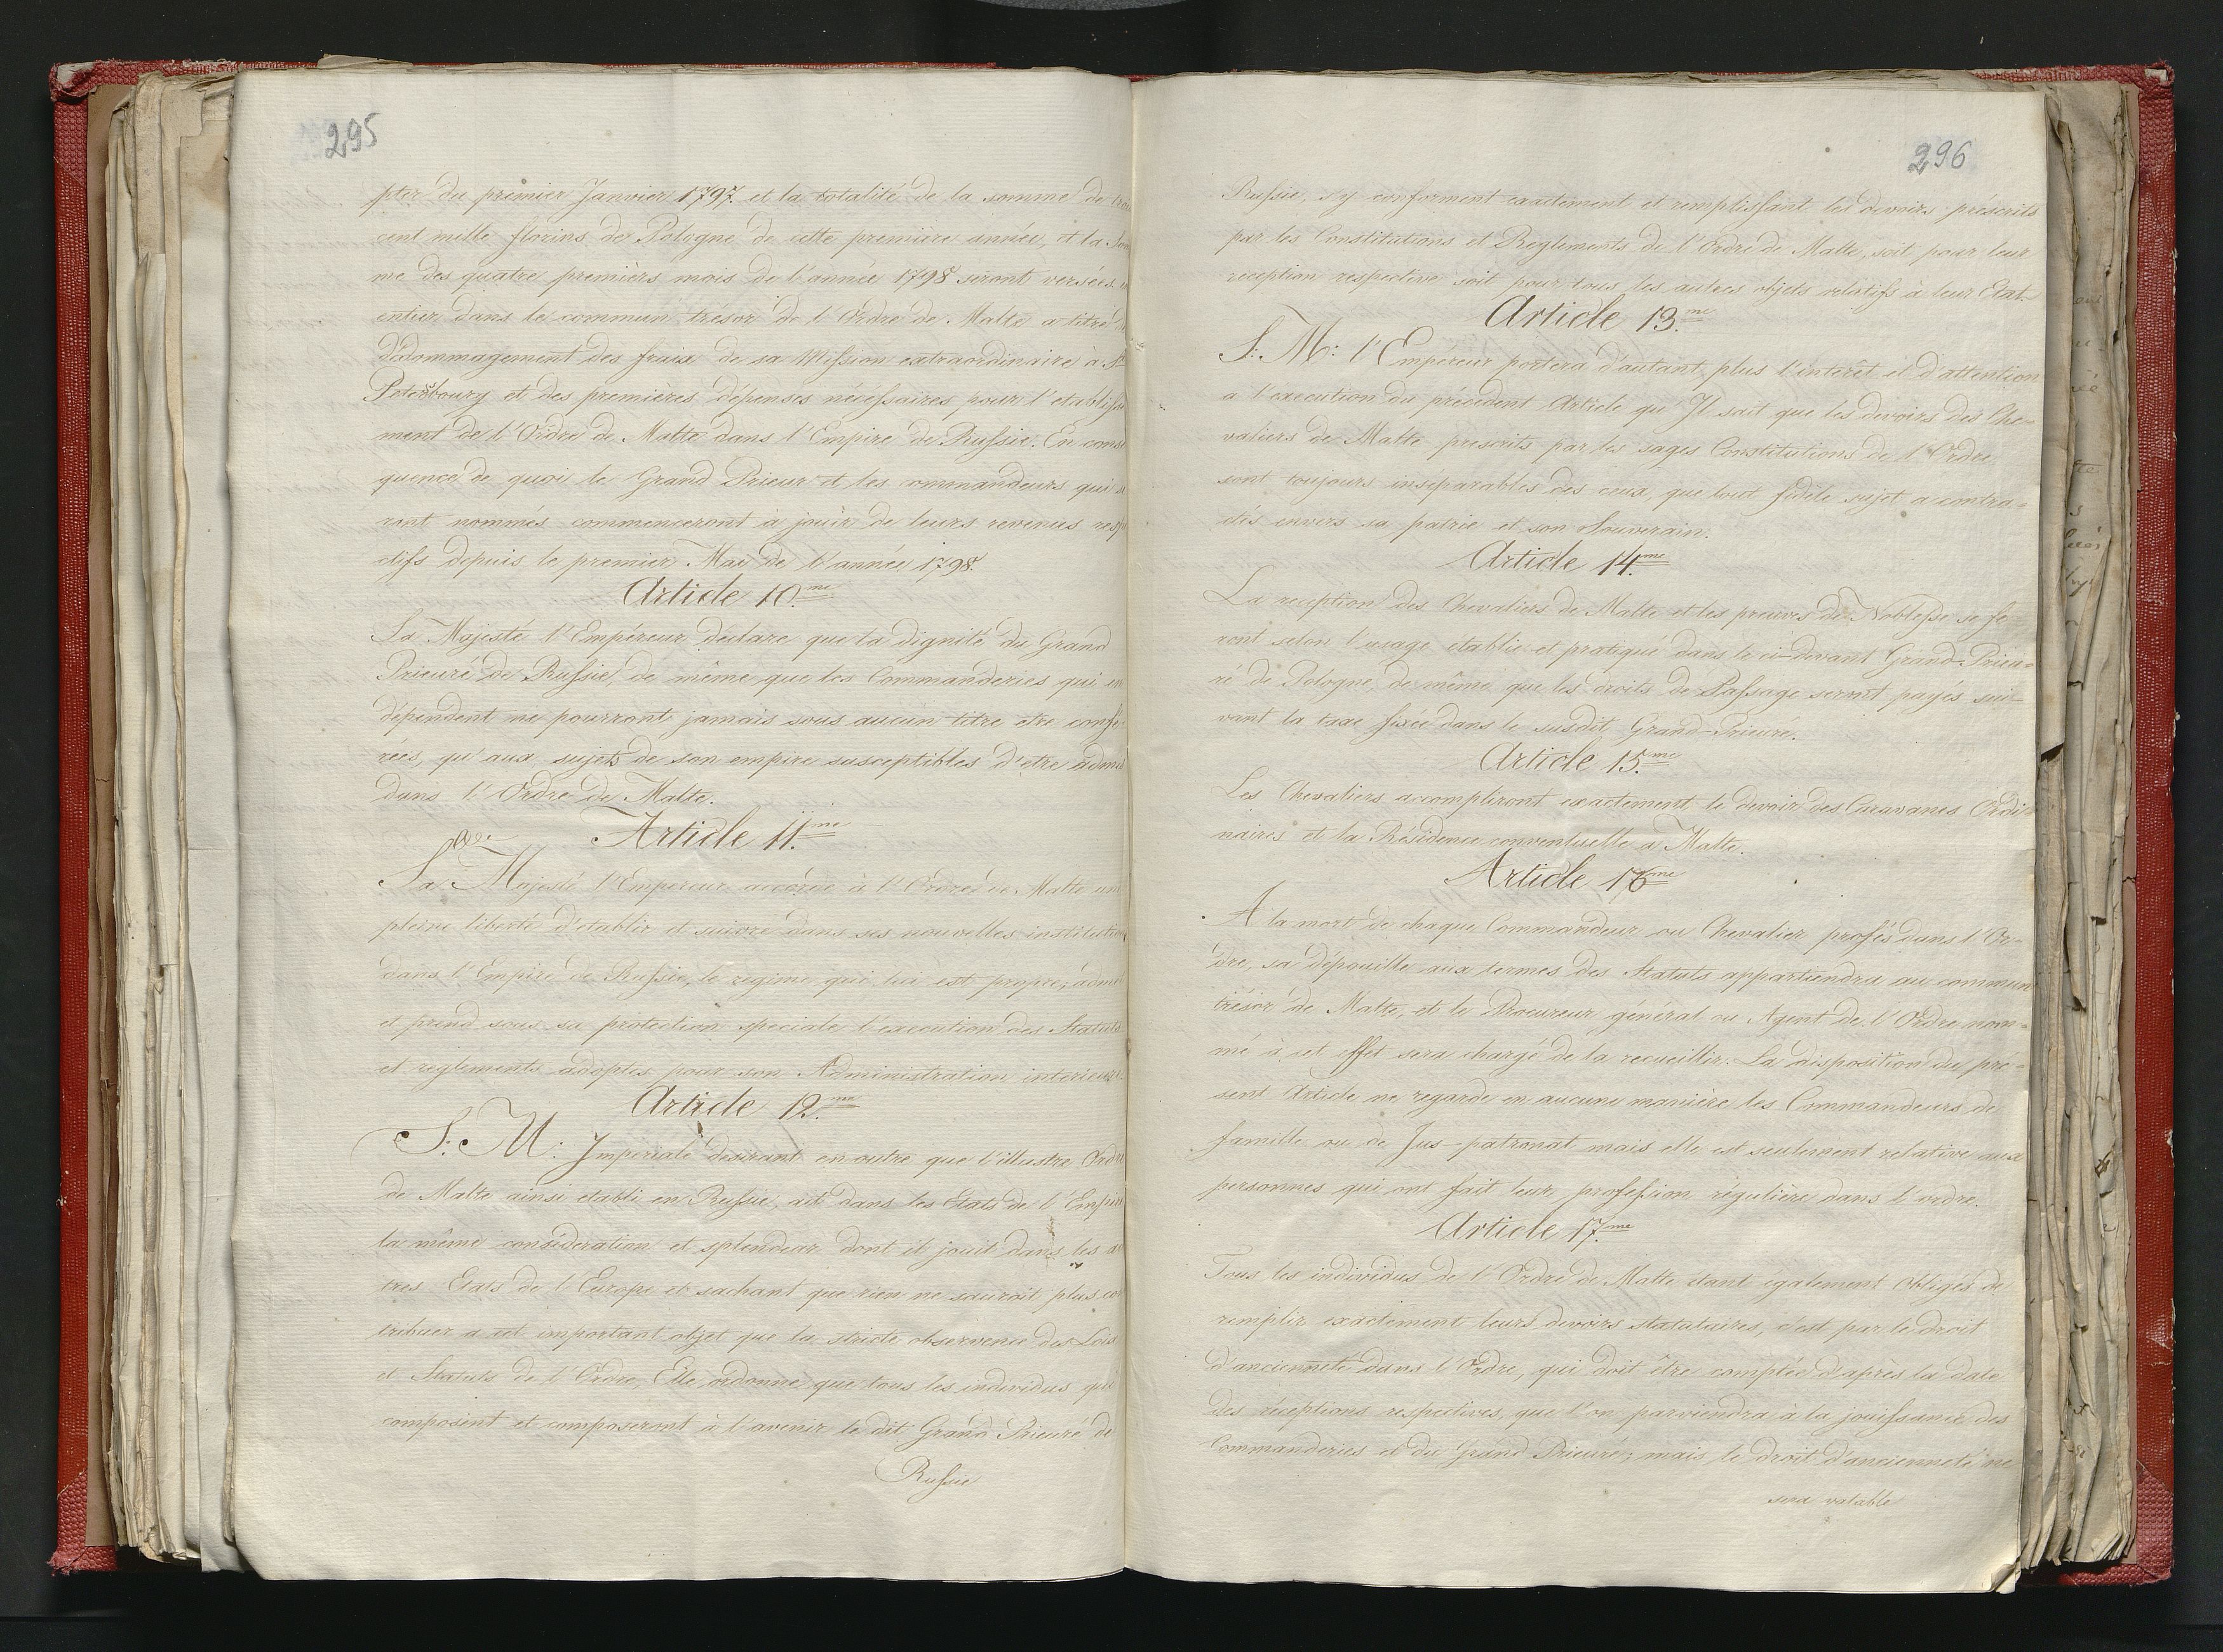 295
pter du premier Janvier 1797. et la totalité de la somme de
cent mille florins de Pologne de cette premiere année, et la
me des quatre premiers mois de l'année 1798 seront versées
entier dans le commun trésor de l'Ordre de Malte a titre
dédommagement des fraix de sa Mission extraordinaire à St
Petersbourg et des premières dépenses nécéssaires pour l'etablisse
ment de l'Ordre de Malte dans l'Empire de Russie. En conse
quence de quoi le Grand Prieur et les commandeurs qui se
ront nommés commenceront à jouir de leurs revenues resp
ctifs depuis le premier Mai de l'année 1798.
Article 10.me
Sa Majesté l'Empéreur déclare que la dignité du Grand
Prieuré de Russie, de même que les Commanderies qui en
dépendent ne pourront jamais sous aucun titre etre confe
rées, qu'aux sujets de son empire susceptibles d'etre admis
dans l'Ordre de Malte.
Article 11.me
Sa Majesté l'Empereur accorde à l'Ordre de Malte une
pleine liberté d'etablir et suivre dans ses nouvelles institution
dans l'Empire de Russie, le regime qui lui est propre; admet
et prend sous sa protection speciale l'execution des Statuts
et reglements adoptés pour son Administration interieure.
Article 12.me
S: M: Imperiale desirant en outre que l'illustre Ordre
de Malte ainsi etabli en Russie, ait dans les Etats de l'Empire
la même considération et splendeur dont il jouit dans les au
tres Etats de l'Europe et sachant que rien ne sauroit plus con
tribuer a cet important objet que la stricte observence des Lois
et Statuts de l'Ordre, Elle ordonne que tous les individus qui
composent et composeront à l'avenir le dit Grand Prieuré de
Russie
296
Russie, s'y conforment exactement et remplissant les devoirs préscrits
par les Constitutions et Reglements de l'Ordre de Malte, soit pour leur
réception respective soit pour tous les autres objets relatifs à leur Etat.
Article 13.me
S: M: l'Empereur portera d'autant plus l'interêt et d'attention
a l'execution du précedent Article qu'Il sait que les devoirs des Che-
valiers de Malte prescrits par les sages Constitutions de l'Ordre
sont toujours inséparables des ceux, que tout fidèle sujet a contra-
ctés envers sa patrie et son Souverain.
Article 14.me
La reception des Chevaliers de Malte et les preuves de Noblesse se fe-
ront selon l'usage établie et pratiqué dans le ci-devant Grand-Prieu-
ré de Pologne, de même que les droits de Passage seront payés sui-
vant la taxe fixée dans le susdit Grand-Prieuré.
Article 15.me
Les Chevaliers accompliront exactement le devoir des Caravanes Ordi-
naires et la Résidence conventuelle a Malte.
Article 16me
A la mort de chaque Commandeur ou Chevalier profés dans l'Or-
dre, sa dépouille aux termes des Statuts appartiendra au commun
trésor de Malte, et le Procureur général ou Agent de l'Ordre nom-
mé à cet effet sera chargé de la recueillir. La disposition du pré-
sent Article ne regarde en aucune manière les Commandeurs de
famille ou de Jus-patronat mais elle est seulement relative aux
personnes qui ont fait leur profession régulière dans l'ordre.
Article 17.me
Tous les individus de l'Ordre de Malte étant egalement obligés de
remplir exactement leurs devoirs statutaires, c'est par le droit
d'ancienneté dans l'Ordre, qui doit être comptée d'après la date
des réceptions respectives, que l'on parviendra à la jouissance des
Commanderies et du Grand Prieuré; mais le droit d'ancienneté ne
sera valable